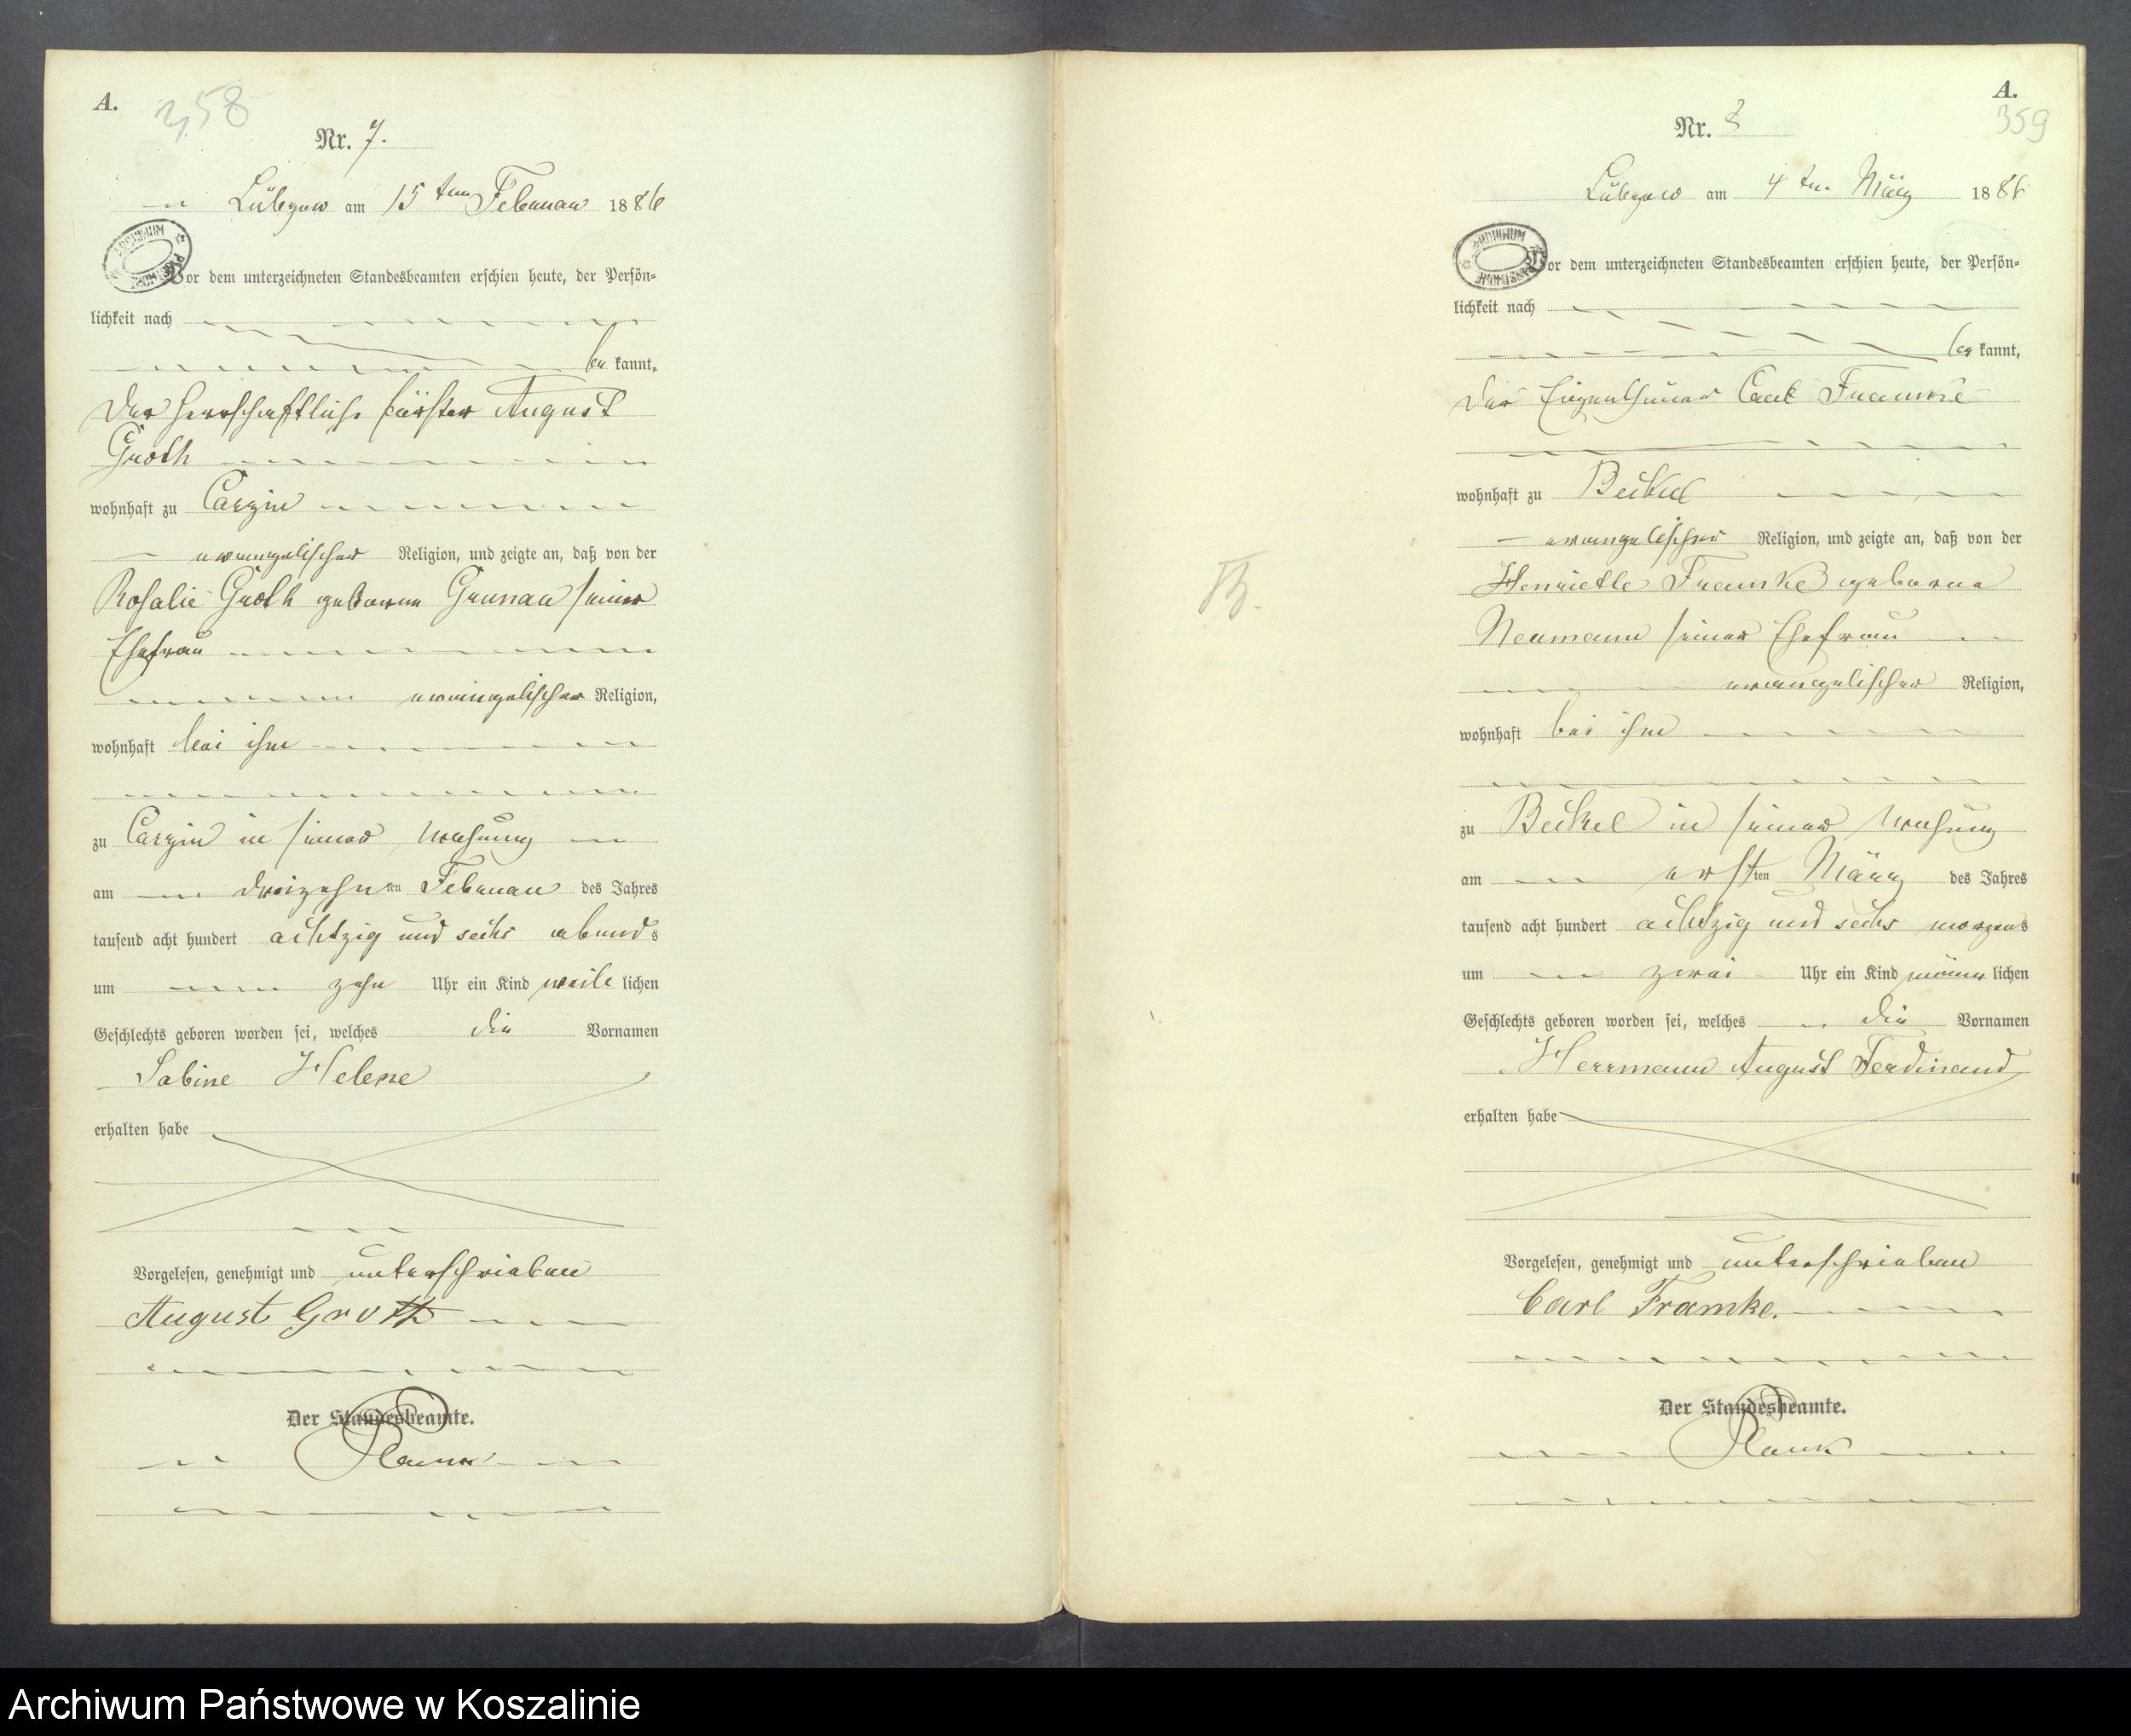 A.
358
Nr. 7.
Lübzow am 15ten Februar 1886
Vor dem unterzeichneten Standesbeamten erschien heute, der Persön=
lichkeit nach
be kannt,
der herrschaftliche Förster August
Groth
wohnhaft zu Carzin
evangelischer Religion, und zeigte an, daß von der
Rosalie Groth geborne Grunau seiner
Ehefrau
evangelischer Religion,
wohnhaft bei ihm
zu Carzin in seiner Wohnung
am dreizehnten Februar des Jahres
tausend acht hundert achtzig und sechs abends
um zehn Uhr ein Kind weib lichen
Geschlechts geboren worden sei, welches die Vornamen
Sabine Helene
erhalten habe
Vorgelesen, genehmigt und unterschrieben
August Groth
Der Standesbeamte.
Plank
A.
359
Nr. 8
Lübzow am 4ten März 1886
Vor dem unterzeichneten Standesbeamten erschien heute, der Persön=
lichkeit nach
be kannt,
der Eigenthümer Carl Framke
wohnhaft zu Beckel
evangelischer Religion, und zeigte an, daß von der
Henriette Framke geborne
Neumann seiner Ehefrau
evangelischer Religion,
wohnhaft bei ihm
zu Beckel in seiner Wohnung
am ersten März des Jahres
tausend acht hundert achtzig und sechs morgens
um zwei Uhr ein Kind männ lichen
Geschlechts geboren worden sei, welches die Vornamen
Herrmann August Ferdinand
erhalten habe
Vorgelesen, genehmigt und unterschrieben
Carl Framke.
Der Standesbeamte.
Plank
Archiwum Państwowe w Koszalinie